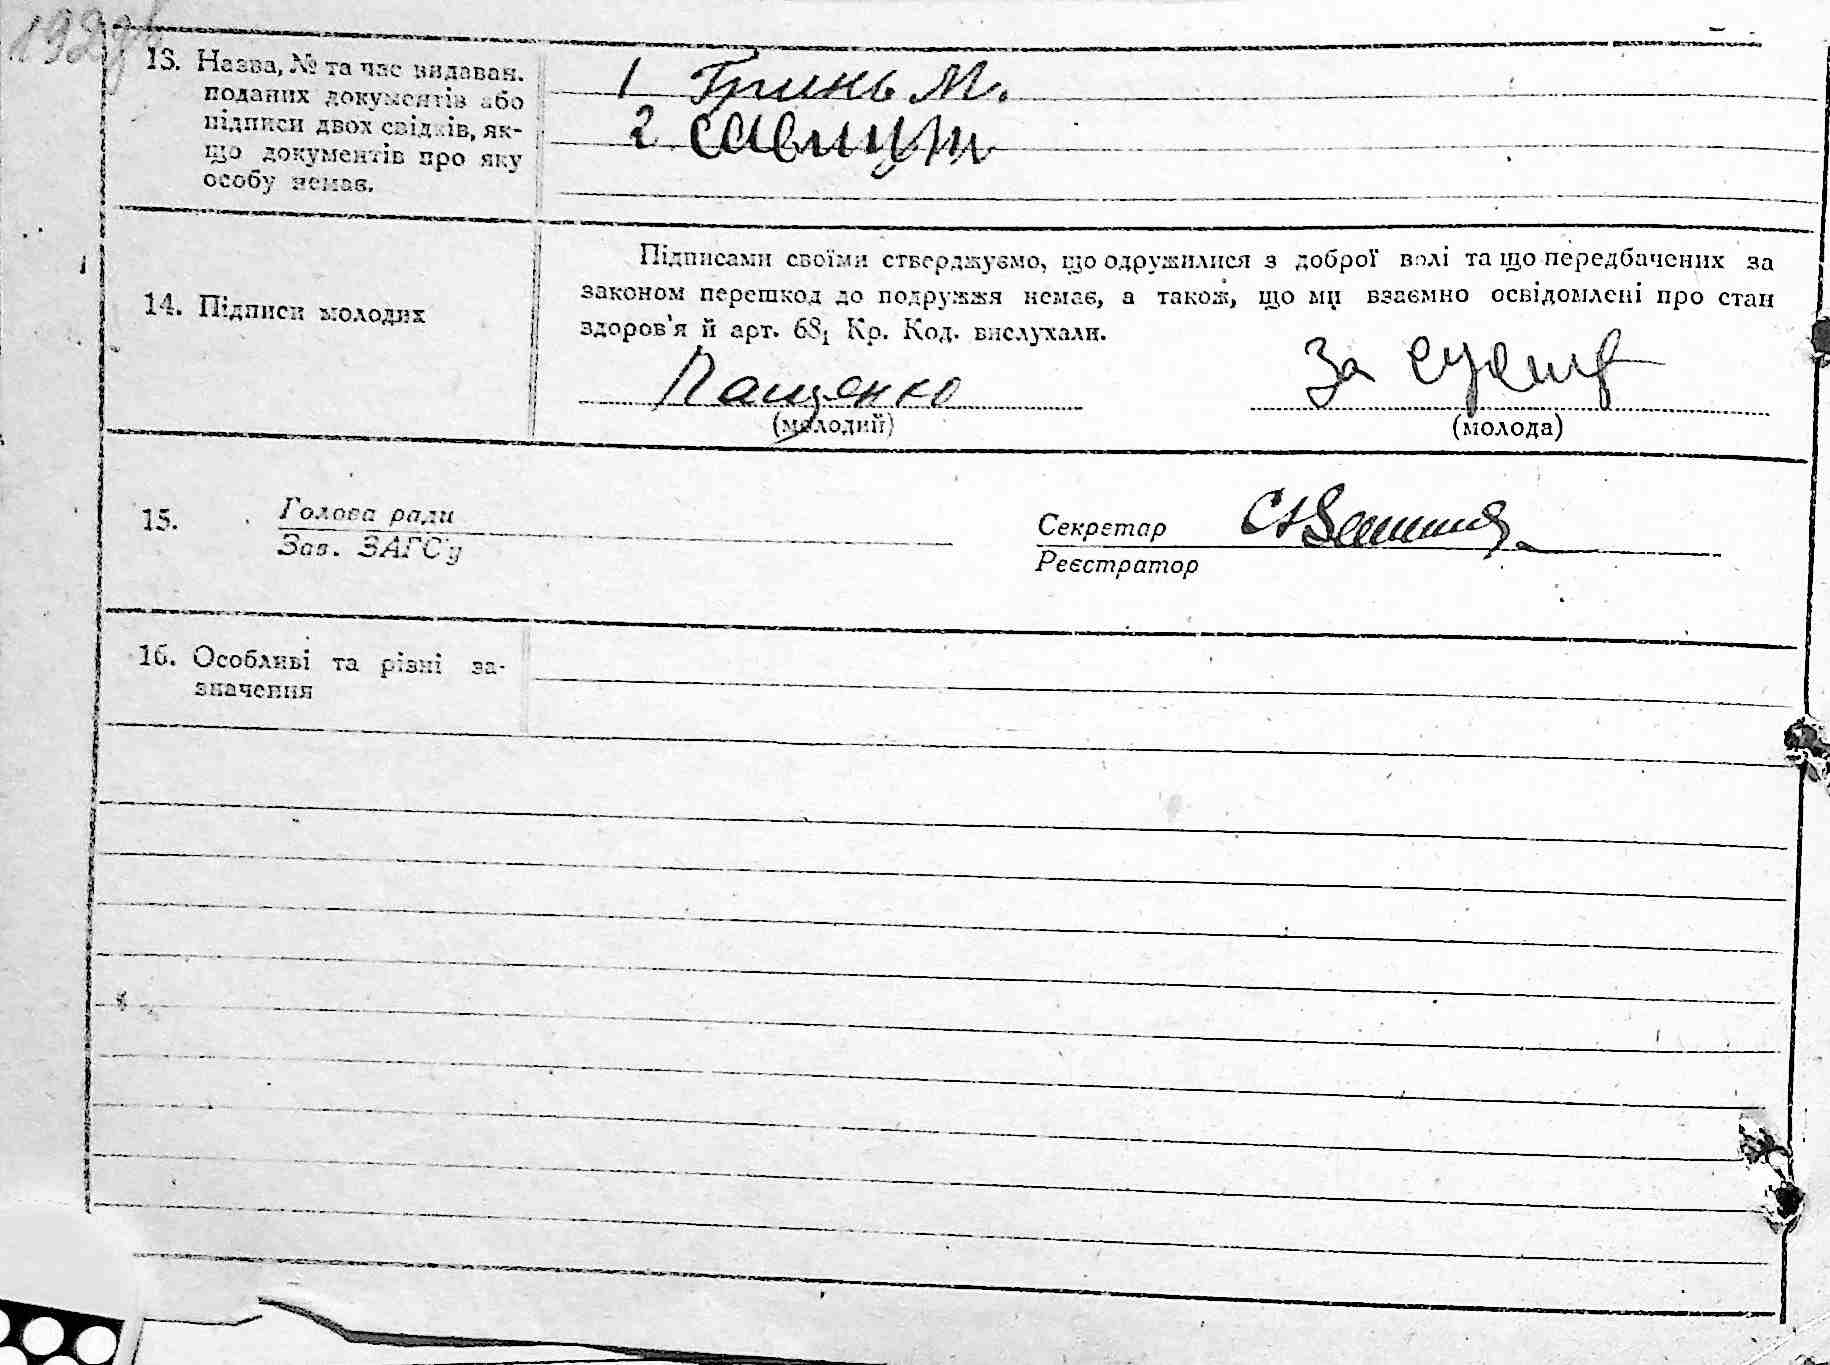 13. Назва, № та час видаван.
поданих документів або
підписи двох свідків, як-
що документів про яку
особу немає.
1 Гринь М.
2
14. Підписи молодих
Підписами своїми стверджуємо, що одружилися з доброї волі та що передбачених за
законом перешкод до подружжя немає, а також, що ми взаємно освідомлені про стан
здоров'я й арт. 68₁ Кр. Код. вислухали.
Пащенко
За
(молодий)
(молода)
15.
Голова ради
Зав. ЗАГС'у
Секретар
Реєстратор
16. Особливі та різні за-
значення